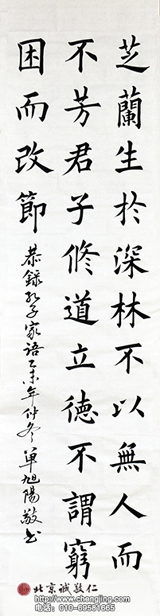 芝蘭生於深林不以無人而
不芳君子修道立德不謂窮
困而改節
恭録孔子家語乙未年仲冬單旭陽敬書
北京诚敬仁
www.chengjing.com
电话:010-69581663